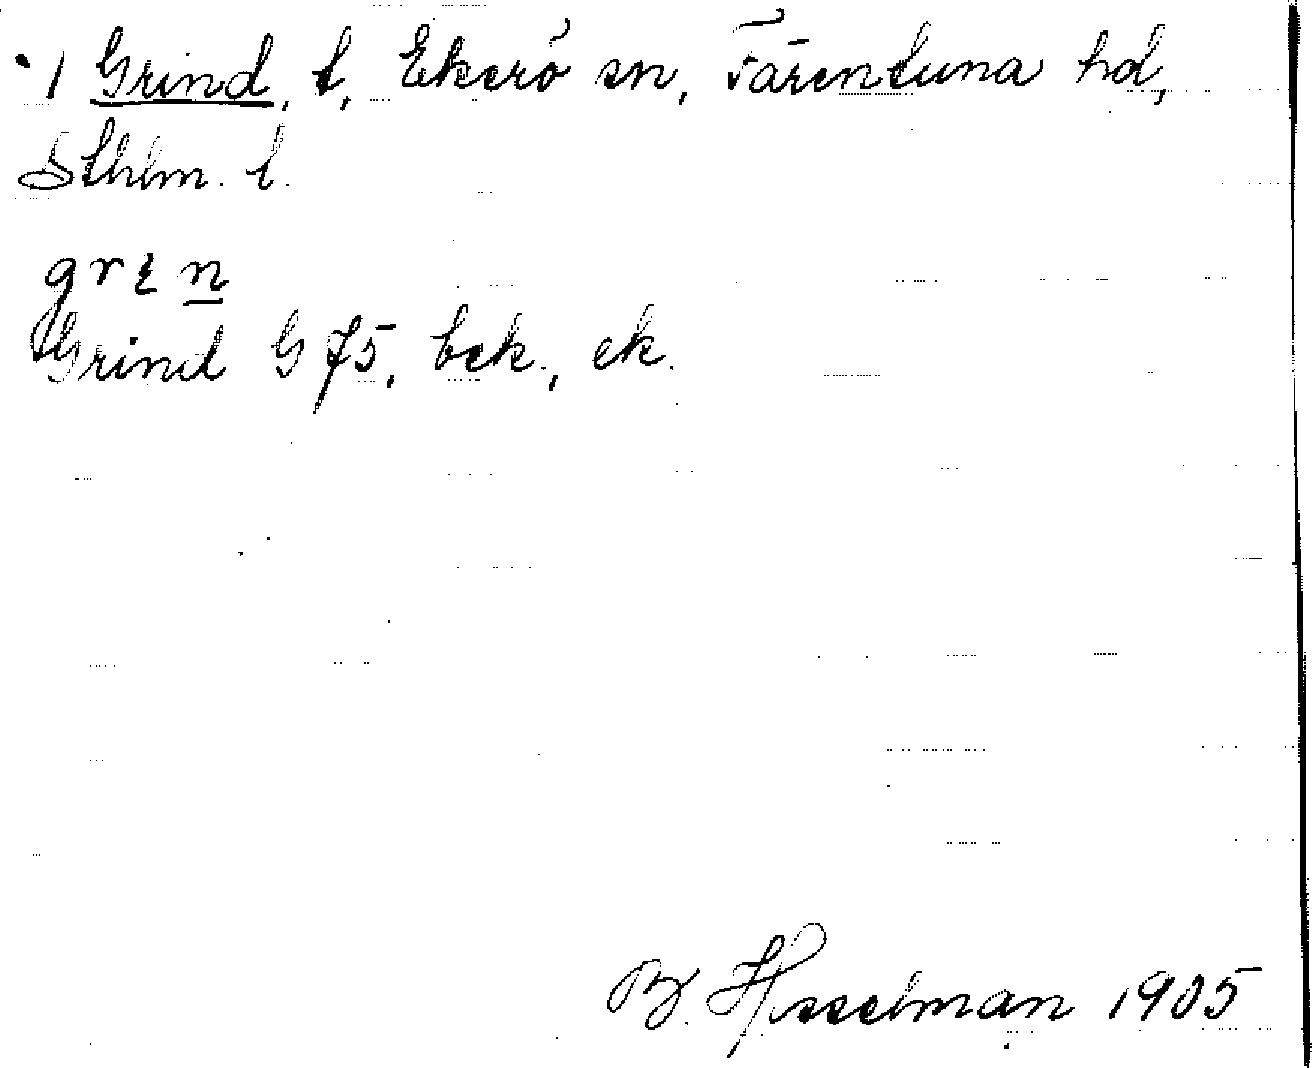 1 Grind, t, Ekerö sn, Färentuna hd,
Sthlm. l.
grɩn
Grind G 75, bek., ek.
B. Hesselman 1905